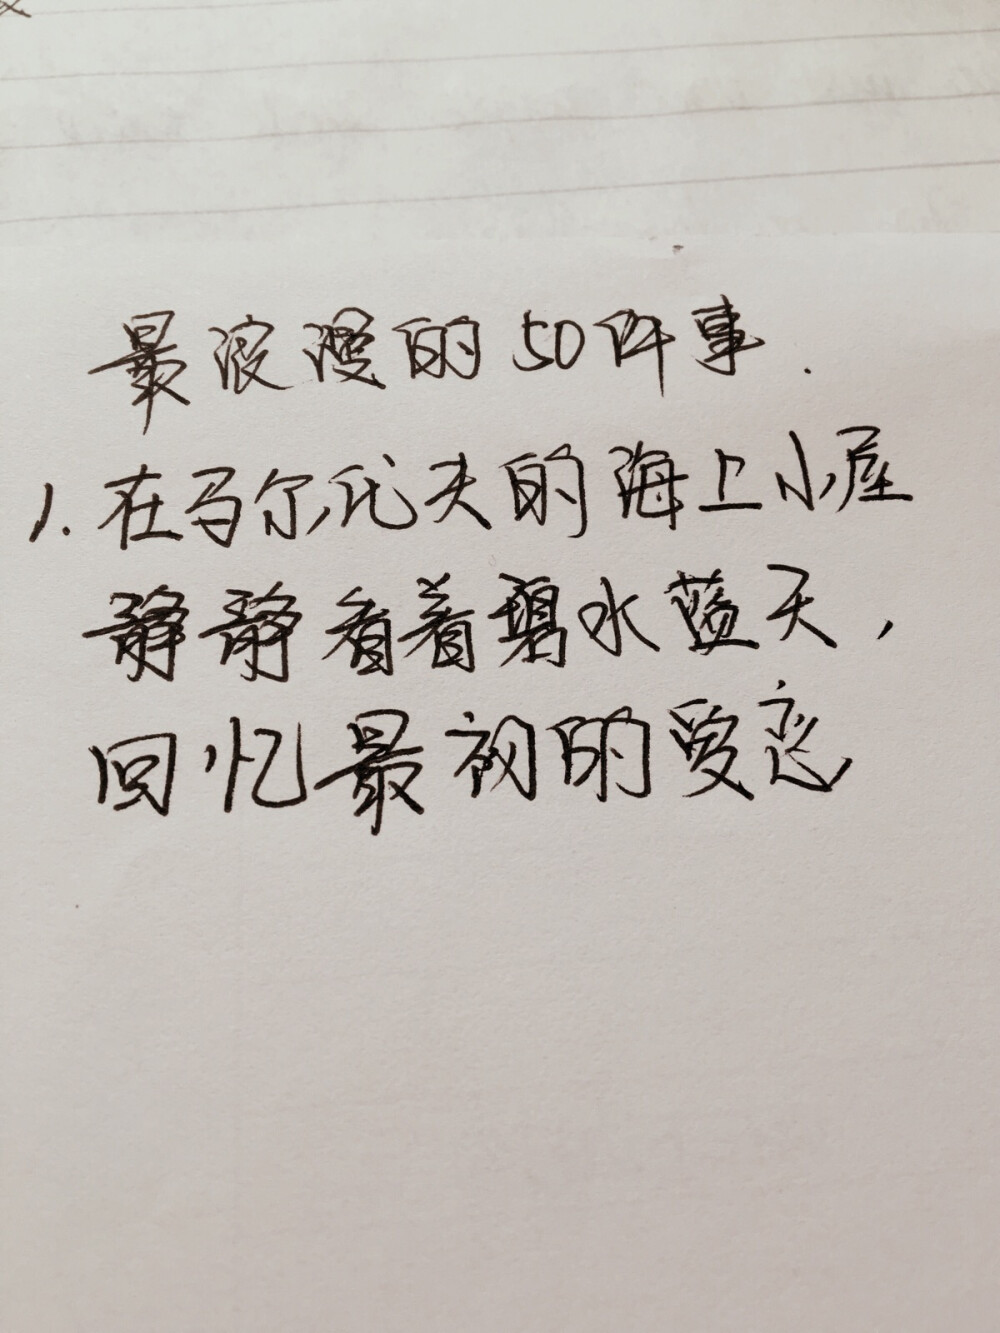 最浪漫的50件事.
1.在马尔代夫的海上小屋
静静看着碧水蓝天,
回忆最初的爱恋